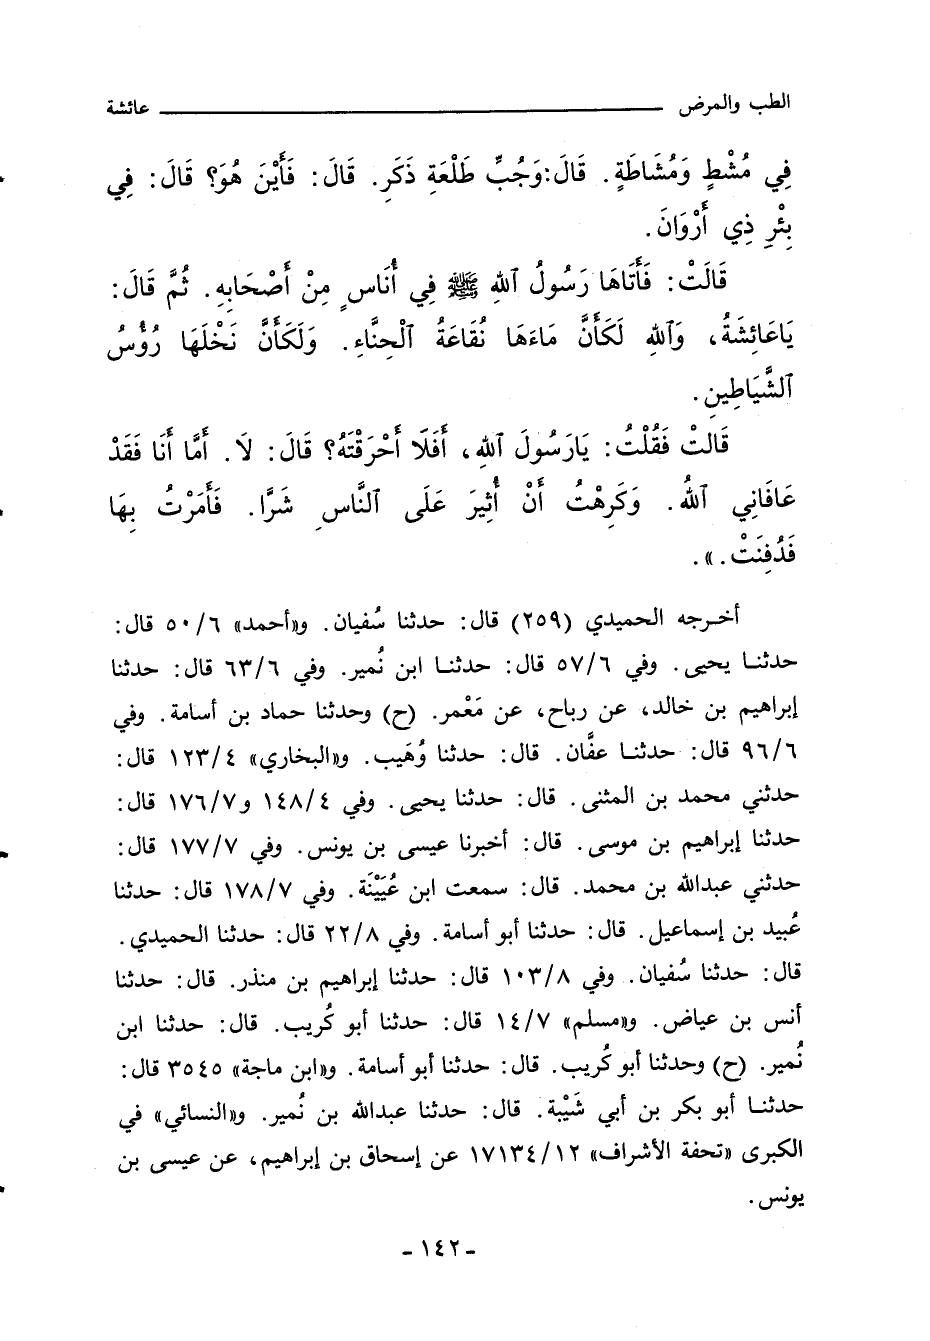 الطب والمرض ــــــــــــــــ عائشة
فِي مُشْطٍ وَمُشَاطَةٍ. قَالَ:وَجُبِّ طَلْعَةِ ذَكَرِ. قَالَ: فَأَيْنَ هُوَ؟ قَالَ: فِي
بِئْرِ ذِي أَرْوَانَ.
قَالَتْ: فَأَتَاهَا رَسُولُ ٱللهِ ﷺ فِي أُنَاسٍ مِنْ أَصْحَابِهِ. ثُمَّ قَالَ:
يَاعَائِشَةُ، وَٱللهِ لَكَأَنَّ مَاءَهَا نُقَاعَةُ ٱلْحِنَّاءِ. وَلَكَأَنَّ نَخْلَهَا رُؤُسُ
ٱلشَّيَاطِينِ.
قَالتْ فَقُلْتُ: يَارَسُولَ ٱللهِ، أَفَلَا أَحْرَقْتَهُ؟ قَالَ: لَا. أَمَّا أَنَا فَقَدْ
عَافَانِي ٱللهُ. وَكَرِهْتُ أَنْ أُثِيرَ عَلَى ٱلنَّاسِ شَرًّا. فَأَمَرْتُ بِهَا
فَدُفِنَتْ.».
أخـرجه الحميدي (٢٥٩) قال: حدثنا سُفيان. و«أحمد» ٥٠/٦ قال:
حدثنـا يحيى. وفي ٥٧/٦ قال: حدثنـا ابن نُمير. وفي ٦٣/٦ قال: حدثنا
إبراهيم بن خالد، عن رباح، عن مَعْمر. (ح) وحدثنا حماد بن أسامة. وفي
٩٦/٦ قال: حدثنـا عفَّان. قال: حدثنا وُهَيب. و«البخاري» ١٢٣/٤ قال:
حدثني محمد بن المثنى. قال: حدثنا يحيى. وفي ١٤٨/٤ و١٧٦/٧ قال:
حدثنا إبراهيم بن موسى. قال: أخبرنا عيسى بن يونس. وفي ١٧٧/٧ قال:
حدثني عبدالله بن محمد. قال: سمعت ابن عُيَيْنَة. وفي ١٧٨/٧ قال: حدثنا
عُبيد بن إسماعيل. قال: حدثنا أبو أسامة. وفي ٢٢/٨ قال: حدثنا الحميدي.
قال: حدثنا سُفيان. وفي ١٠٣/٨ قال: حدثنا إبراهيم بن منذر. قال: حدثنا
أنس بن عياض. و«مسلم» ١٤/٧ قال: حدثنا أبو كُريب. قال: حدثنا ابن
نُمير. (ح) وحدثنا أبو كُريب. قال: حدثنا أبو أسامة. و«ابن ماجة» ٣٥٤٥ قال:
حدثنـا أبو بكر بن أبي شَيْبة. قال: حدثنا عبدالله بن نُمير. و«النسائي» في
الكبرى «تحفة الأشراف» ١٧١٣٤/١٢ عن إسحاق بن إبراهيم، عن عيسى بن
يونس.
- ١٤٢ -